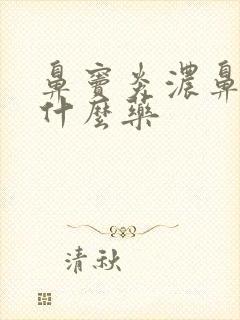 鼻窦炎濃鼻
什麼藥
清秋